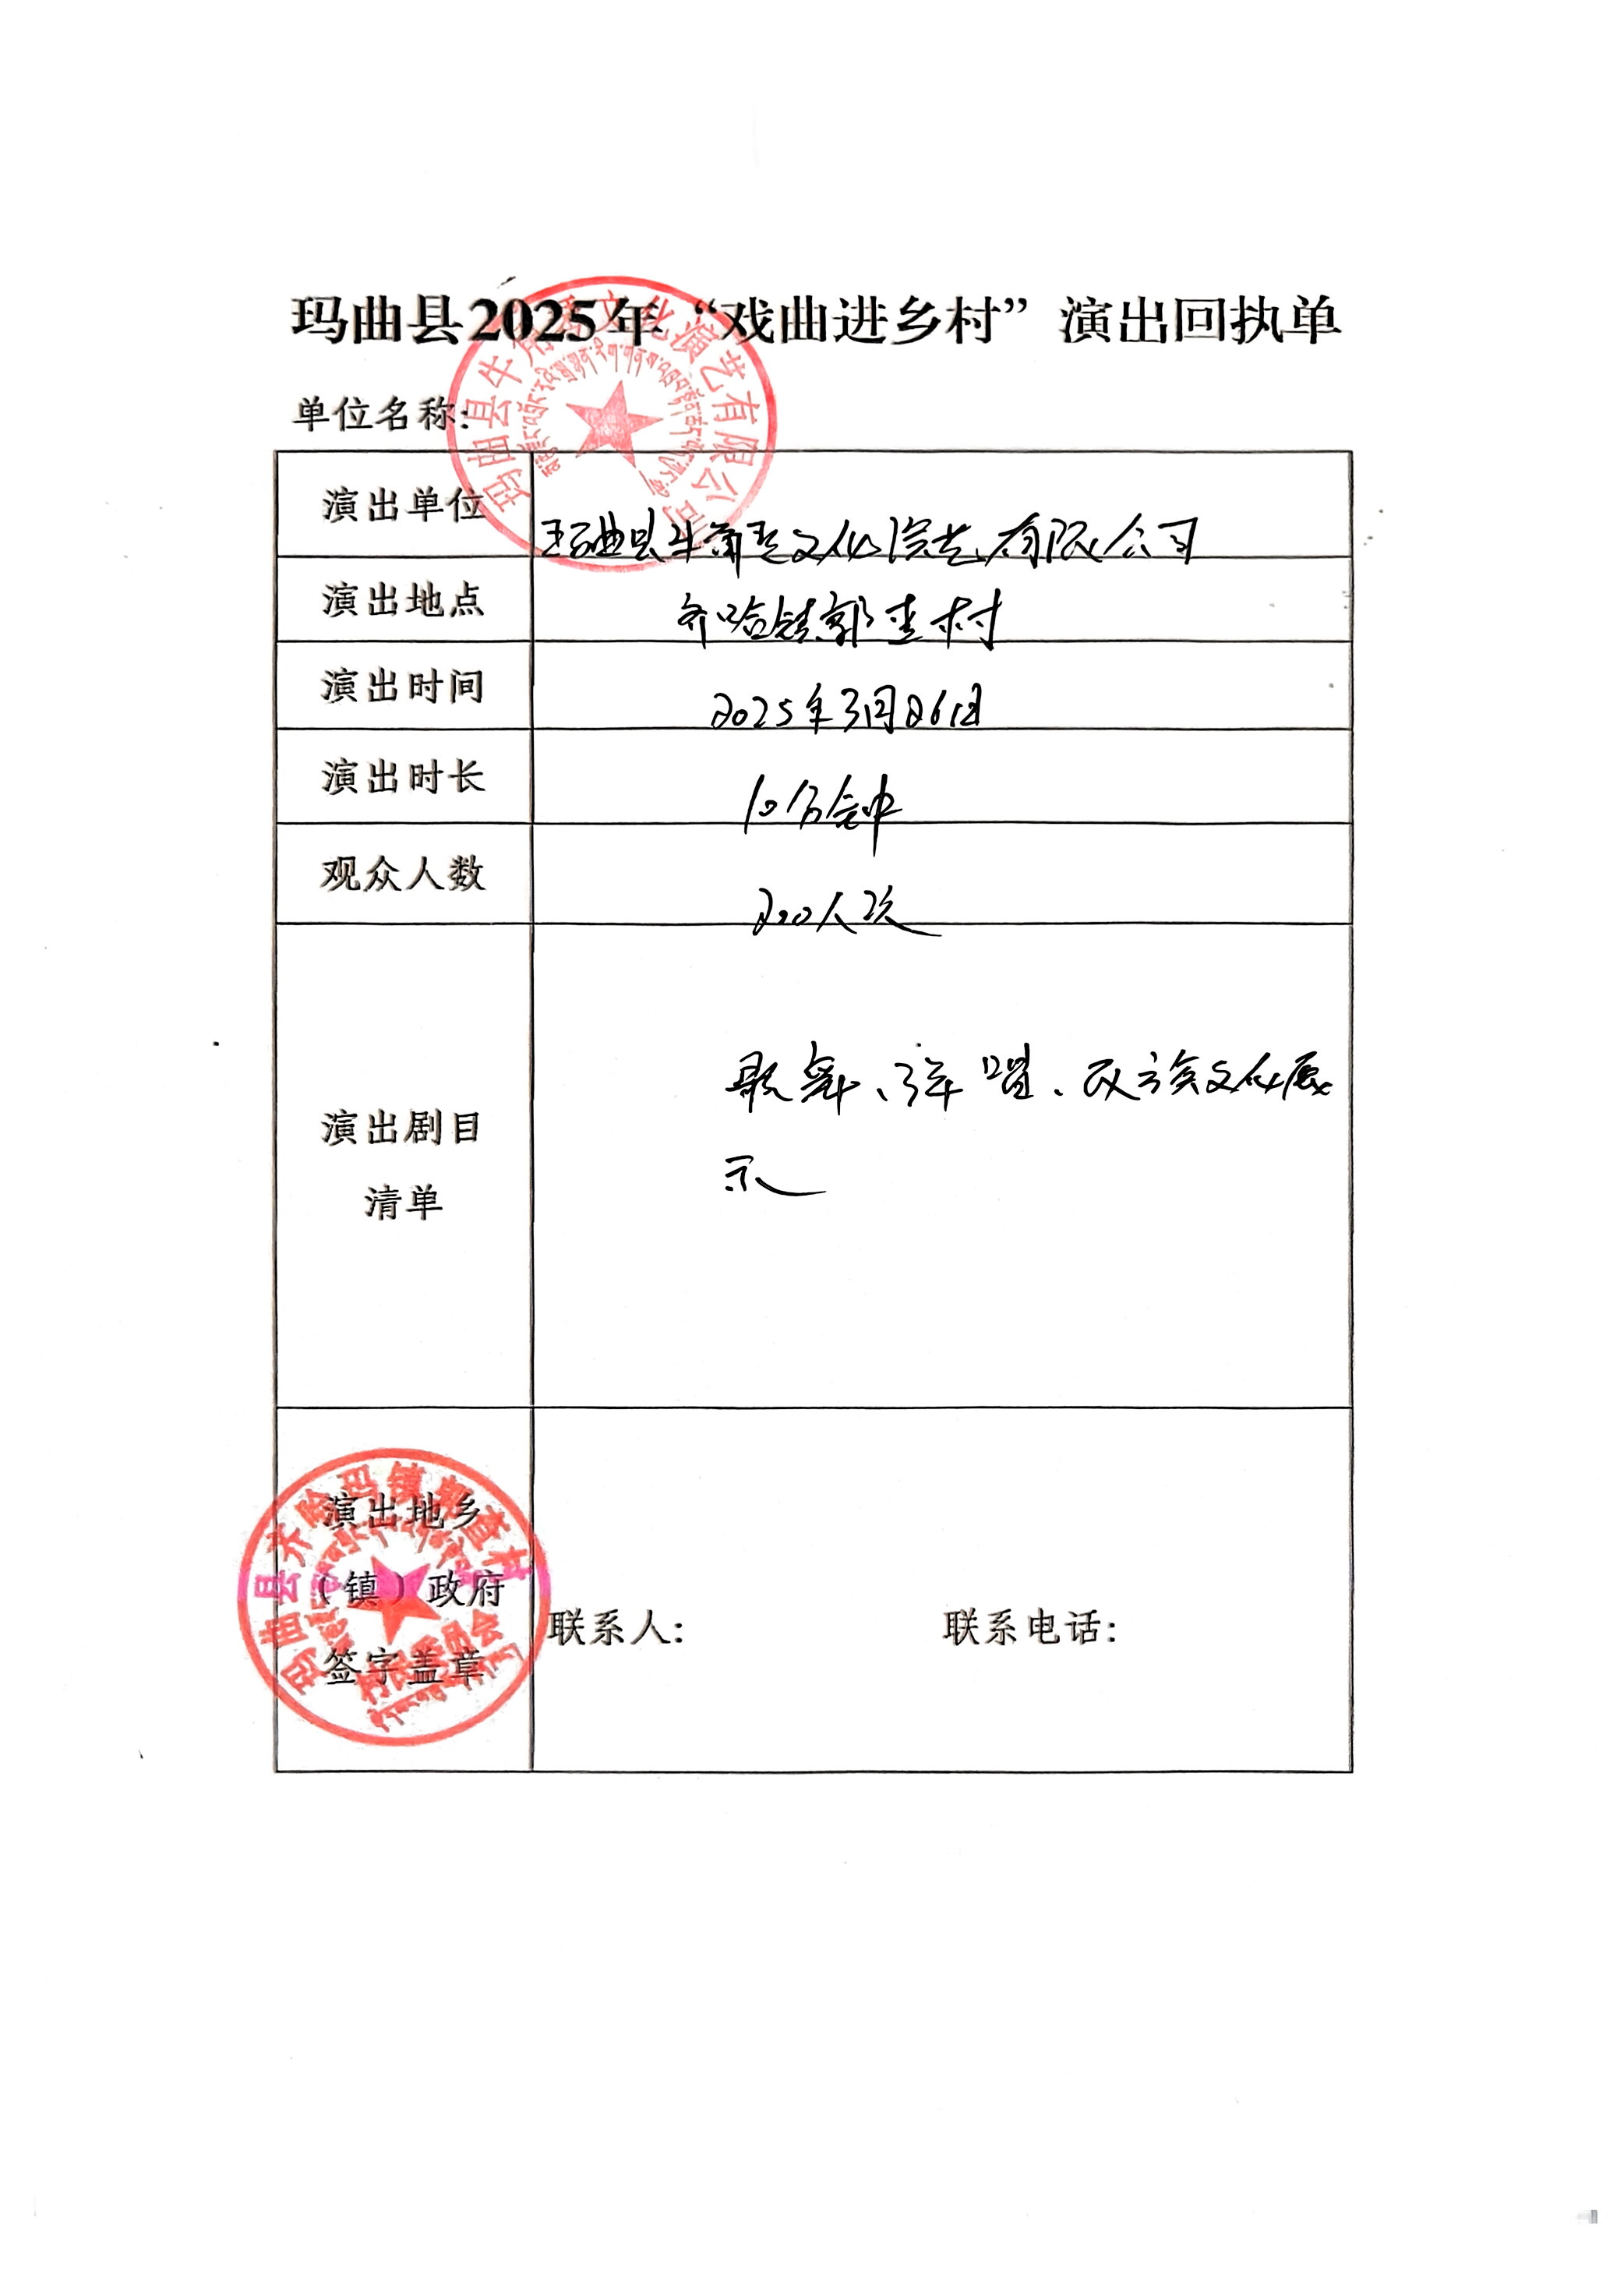 玛曲县2025年“戏曲进乡村”演出回执单
单位名称:
演出单位
玛曲县牛角琴文化演艺有限公司
演出地点
齐哈镇郭查村
演出时间
2025年3月26日
演出时长
10分钟
观众人数
200人次
演出剧目
清单
歌舞、弹唱、民族文化展
示
演出地乡
（镇）政府
签字盖章
联系人:
联系电话:
文化演艺有限公司
玛曲县齐哈玛镇